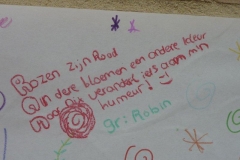 Rozen zijn Rood
Andere bloemen een andere kleur
Door verandert iets aan mijn
humeur!
gr: Robin